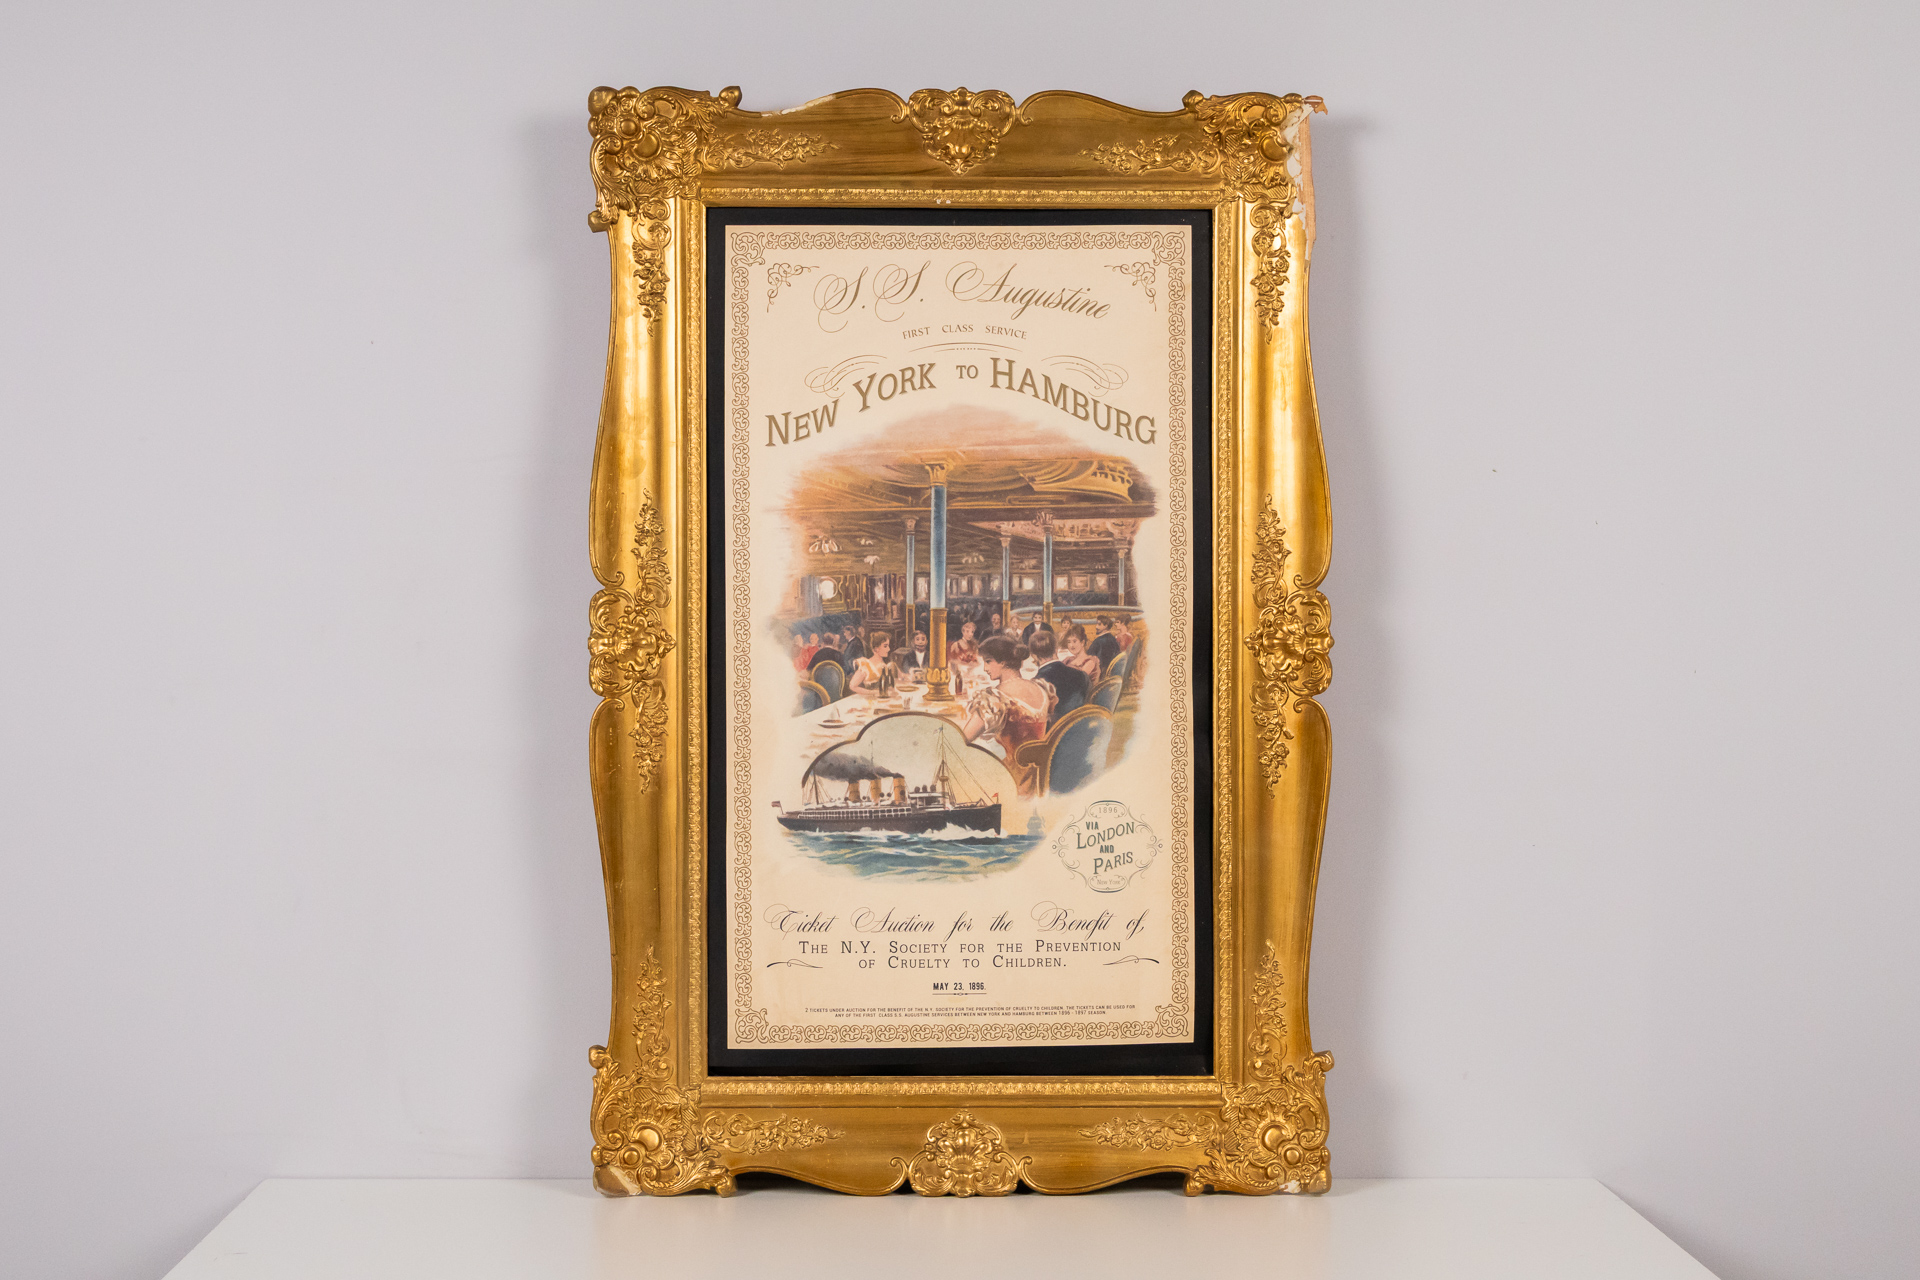 S.S. Augustine
FIRST CLASS SERVICE
NEW YORK TO HAMBURG
1896
VIA
LONDON
AND
PARIS
New York
Ticket Auction for the Benefit of,
THE N.Y. SOCIETY FOR THE PREVENTION
OF CRUELTY TO CHILDREN.
MAY 23, 1896.
2 TICKETS UNDER AUCTION FOR THE BENEFIT OF THE N.Y. SOCIETY FOR THE PREVENTION OF CRUELTY TO CHILDREN. THE TICKETS CAN BE USED FOR
ANY OF THE FIRST CLASS S.S. AUGUSTINE SERVICES BETWEEN NEW YORK AND HAMBURG BETWEEN 1896 - 1897 SEASON.